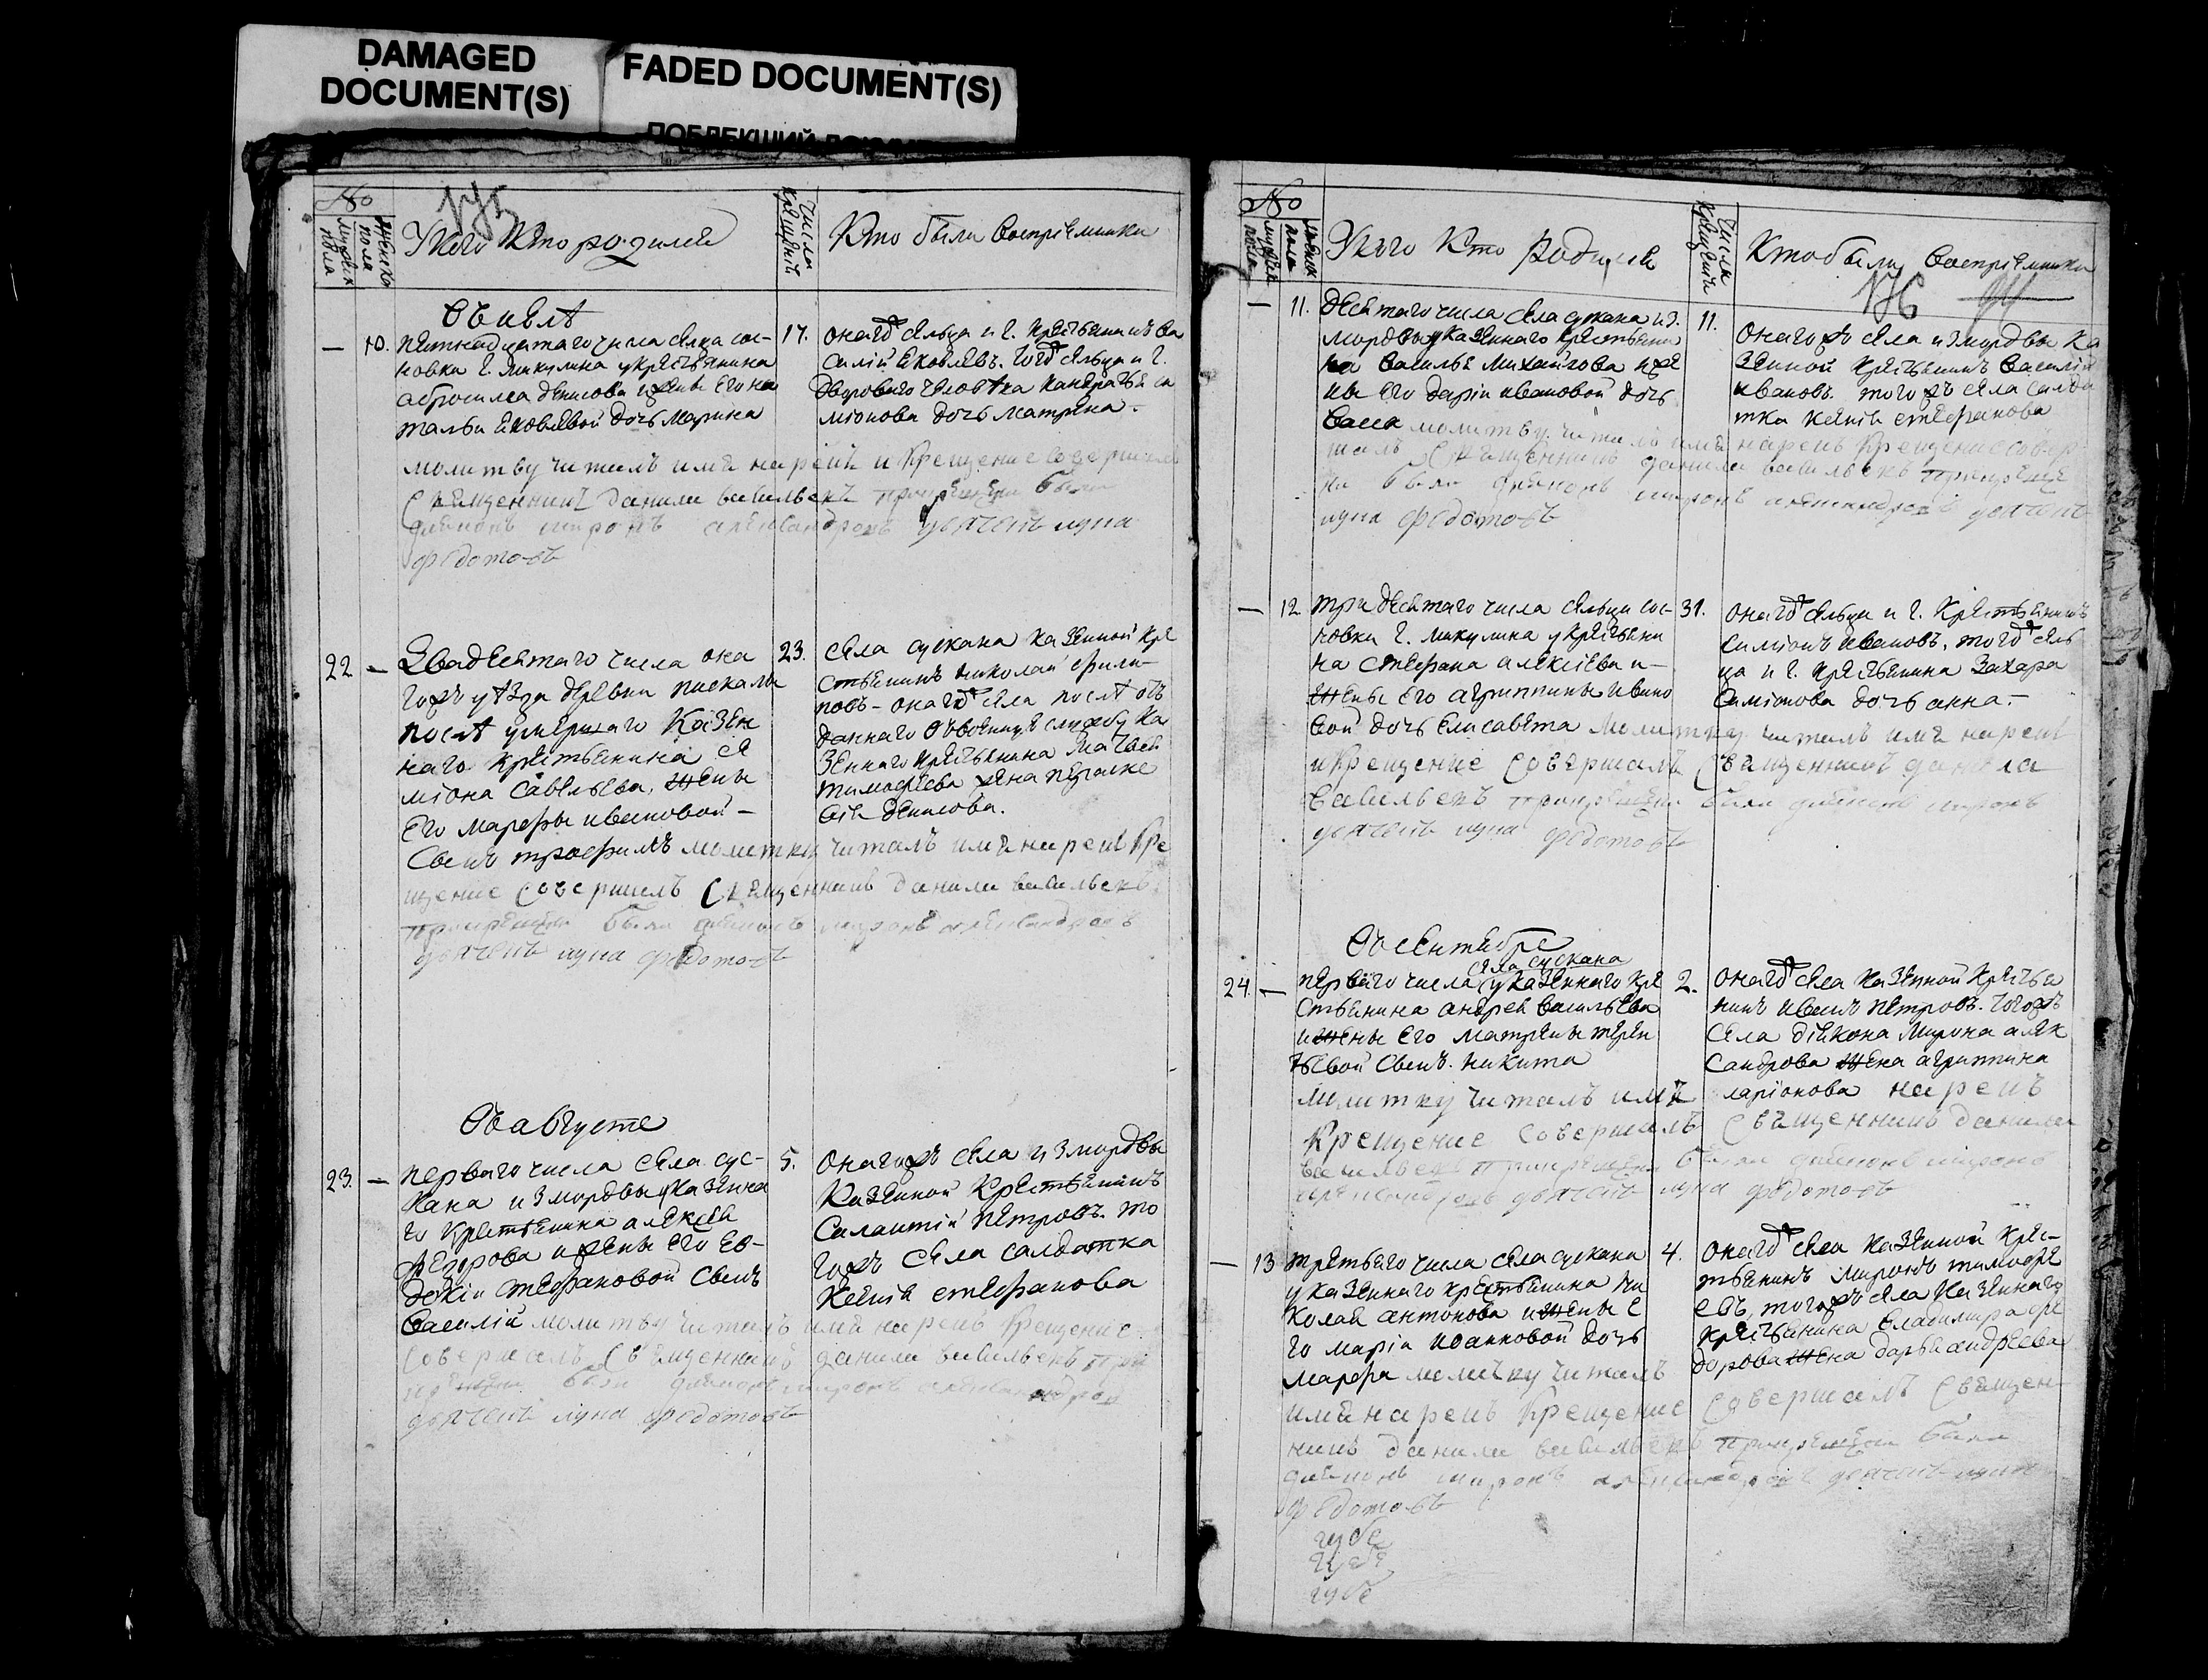 DAMAGED
DOCUMENT(S)
FADED DOCUMENT(S)
№
мужеска пола
женска пола
Укого Кто родился
Числа крещений
Кто были восприемники
Въ июлѣ
— 10. пятнадцатаго числа селца сос-
новки г. микулина укрестьянина
абросима денисова ижены его на
тальи яковлевой дочь марина
17. онагожъ сельца и г. крестьянинъ ва
силий яковлевъ. тогожъ сельца и г.
двороваго человѣка кандратья си
мионова дочь матрена.
молитву читалъ имя нарекъ и крещение совершалъ
священникъ данила васильевъ при крещении были
диаконъ миронъ александровъ дьячекъ лука
федотовъ
22 — Двадесятаго числа она
гожъ уѣзда деревни пискалы
послѣ умершаго казен
наго крестьянина се
миона савельева, жены
его марфы ивановой —
сынъ трофимъ молитву читалъ имя нарекъ кре
щение совершалъ священникъ данила васильевъ
при крещении были диаконъ миронъ александровъ
дьячекъ лука федотовъ
23. села сускана казенной кре
стьянинъ николай фили-
повъ — онагожъ села послѣ отъ
даннаго въвоенную службу ка
зеннаго крестьянина матвея
тимофеева жена пелагея
денисова.
Въ августе
23. — перваго числа села сус-
кана измордвы указенна
го крестьянина алексея
федорова ижены его ев-
докии стефановой сынъ
василий молитву читалъ имя нарекъ крещение
совершалъ священникъ данила васильевъ при
крещении были диаконъ миронъ александров
дьячекъ лука федотовъ
5. онагожъ села измордвы
казенной крестьянинъ
силантий петровъ. то
гожъ села салдатка
ксения стефанова
№
мужеска пола
женска пола
Укого Кто Родился
Числа крещений
Кто были восприемники
— 11. десятаго числа села сускана из.
мордвы указеннаго крестьяни
на василья михайлова иже
ны его дарии ивановой дочь
васса молитву читалъ имя нарекъ крещение совер-
шалъ священникъ данила васильевъ прикреще
нии были диаконъ миронъ александровъ дьячекъ
лука федотовъ
11. онагожъ села измордвы ка
зенной крестьянинъ василий
ивановъ. тогожъ села салда
тка ксения стефанова
— 12 тридесятаго числа сельца сос-
новки г. микулина укрестьяни
на стефана алексиева и —
жены его агриппины ивано
вой дочь елисавета молитву читалъ имя нарекъ
икрещение совершалъ священникъ данила
васильевъ прикрещении были диаконъ миронъ
дьячекъ лука федотовъ
31. онагожъ сельца и г. крестьянинъ
симионъ ивановъ, тогожъ сель
ца и г. крестьянина захара
симионова дочь анна. —
Въ сентябре
села сускана
24. — перваго числа указеннаго кре
стьянина андрея васильева
ижены его матрены терен
тьевой сынъ. никита
молитву читалъ имя нарекъ
крещение совершалъ священникъ данила
васильевъ прикрещении были диаконъ миронъ
александровъ дьячекъ лука федотовъ
2. онагожъ села казенной крестья
нинъ иванъ петровъ. тогожъ
села диакона мирона алек
сандрова жена агриппина
ларионова
— 13 третьяго числа села сускана
указеннаго крестьянина ни
колая антонова ижены е
го марии иоанновой дочь
марфа молитву читалъ
имя нарекъ крещение совершалъ священ-
никъ данила васильевъ прикрещении были
диаконъ миронъ александровъ дьячекъ лука
федотовъ
4. онагожъ села казенной крес-
тьянинъ миронъ тимофе
евъ, тогожъ села казеннаго
крестьянина владимира фе
дорова жена дарья андреева